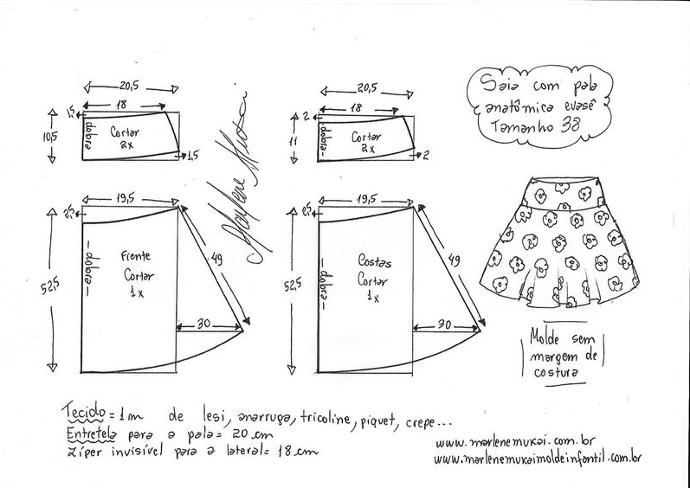 Saia com pala
anatômica evasê
Tamanho 38
20,5
18
1,5
10,5
dobra
Cortar
2x
1,5
19,5
2,5
52,5
dobra
Frente
Cortar
1x
49
30
Marlene Mukai
20,5
18
2
11
dobra
Cortar
2x
2
19,5
2,5
52,5
dobra
Costas
Cortar
1x
49
30
Molde sem
margem de
costura
Tecido = 1m de lesi, anarruga, tricoline, piquet, crepe...
Entretela para a pala = 20 cm
Zíper invisível para a lateral = 18 cm
www.marlenemukai.com.br
www.marlenemukaimoldeinfantil.com.br